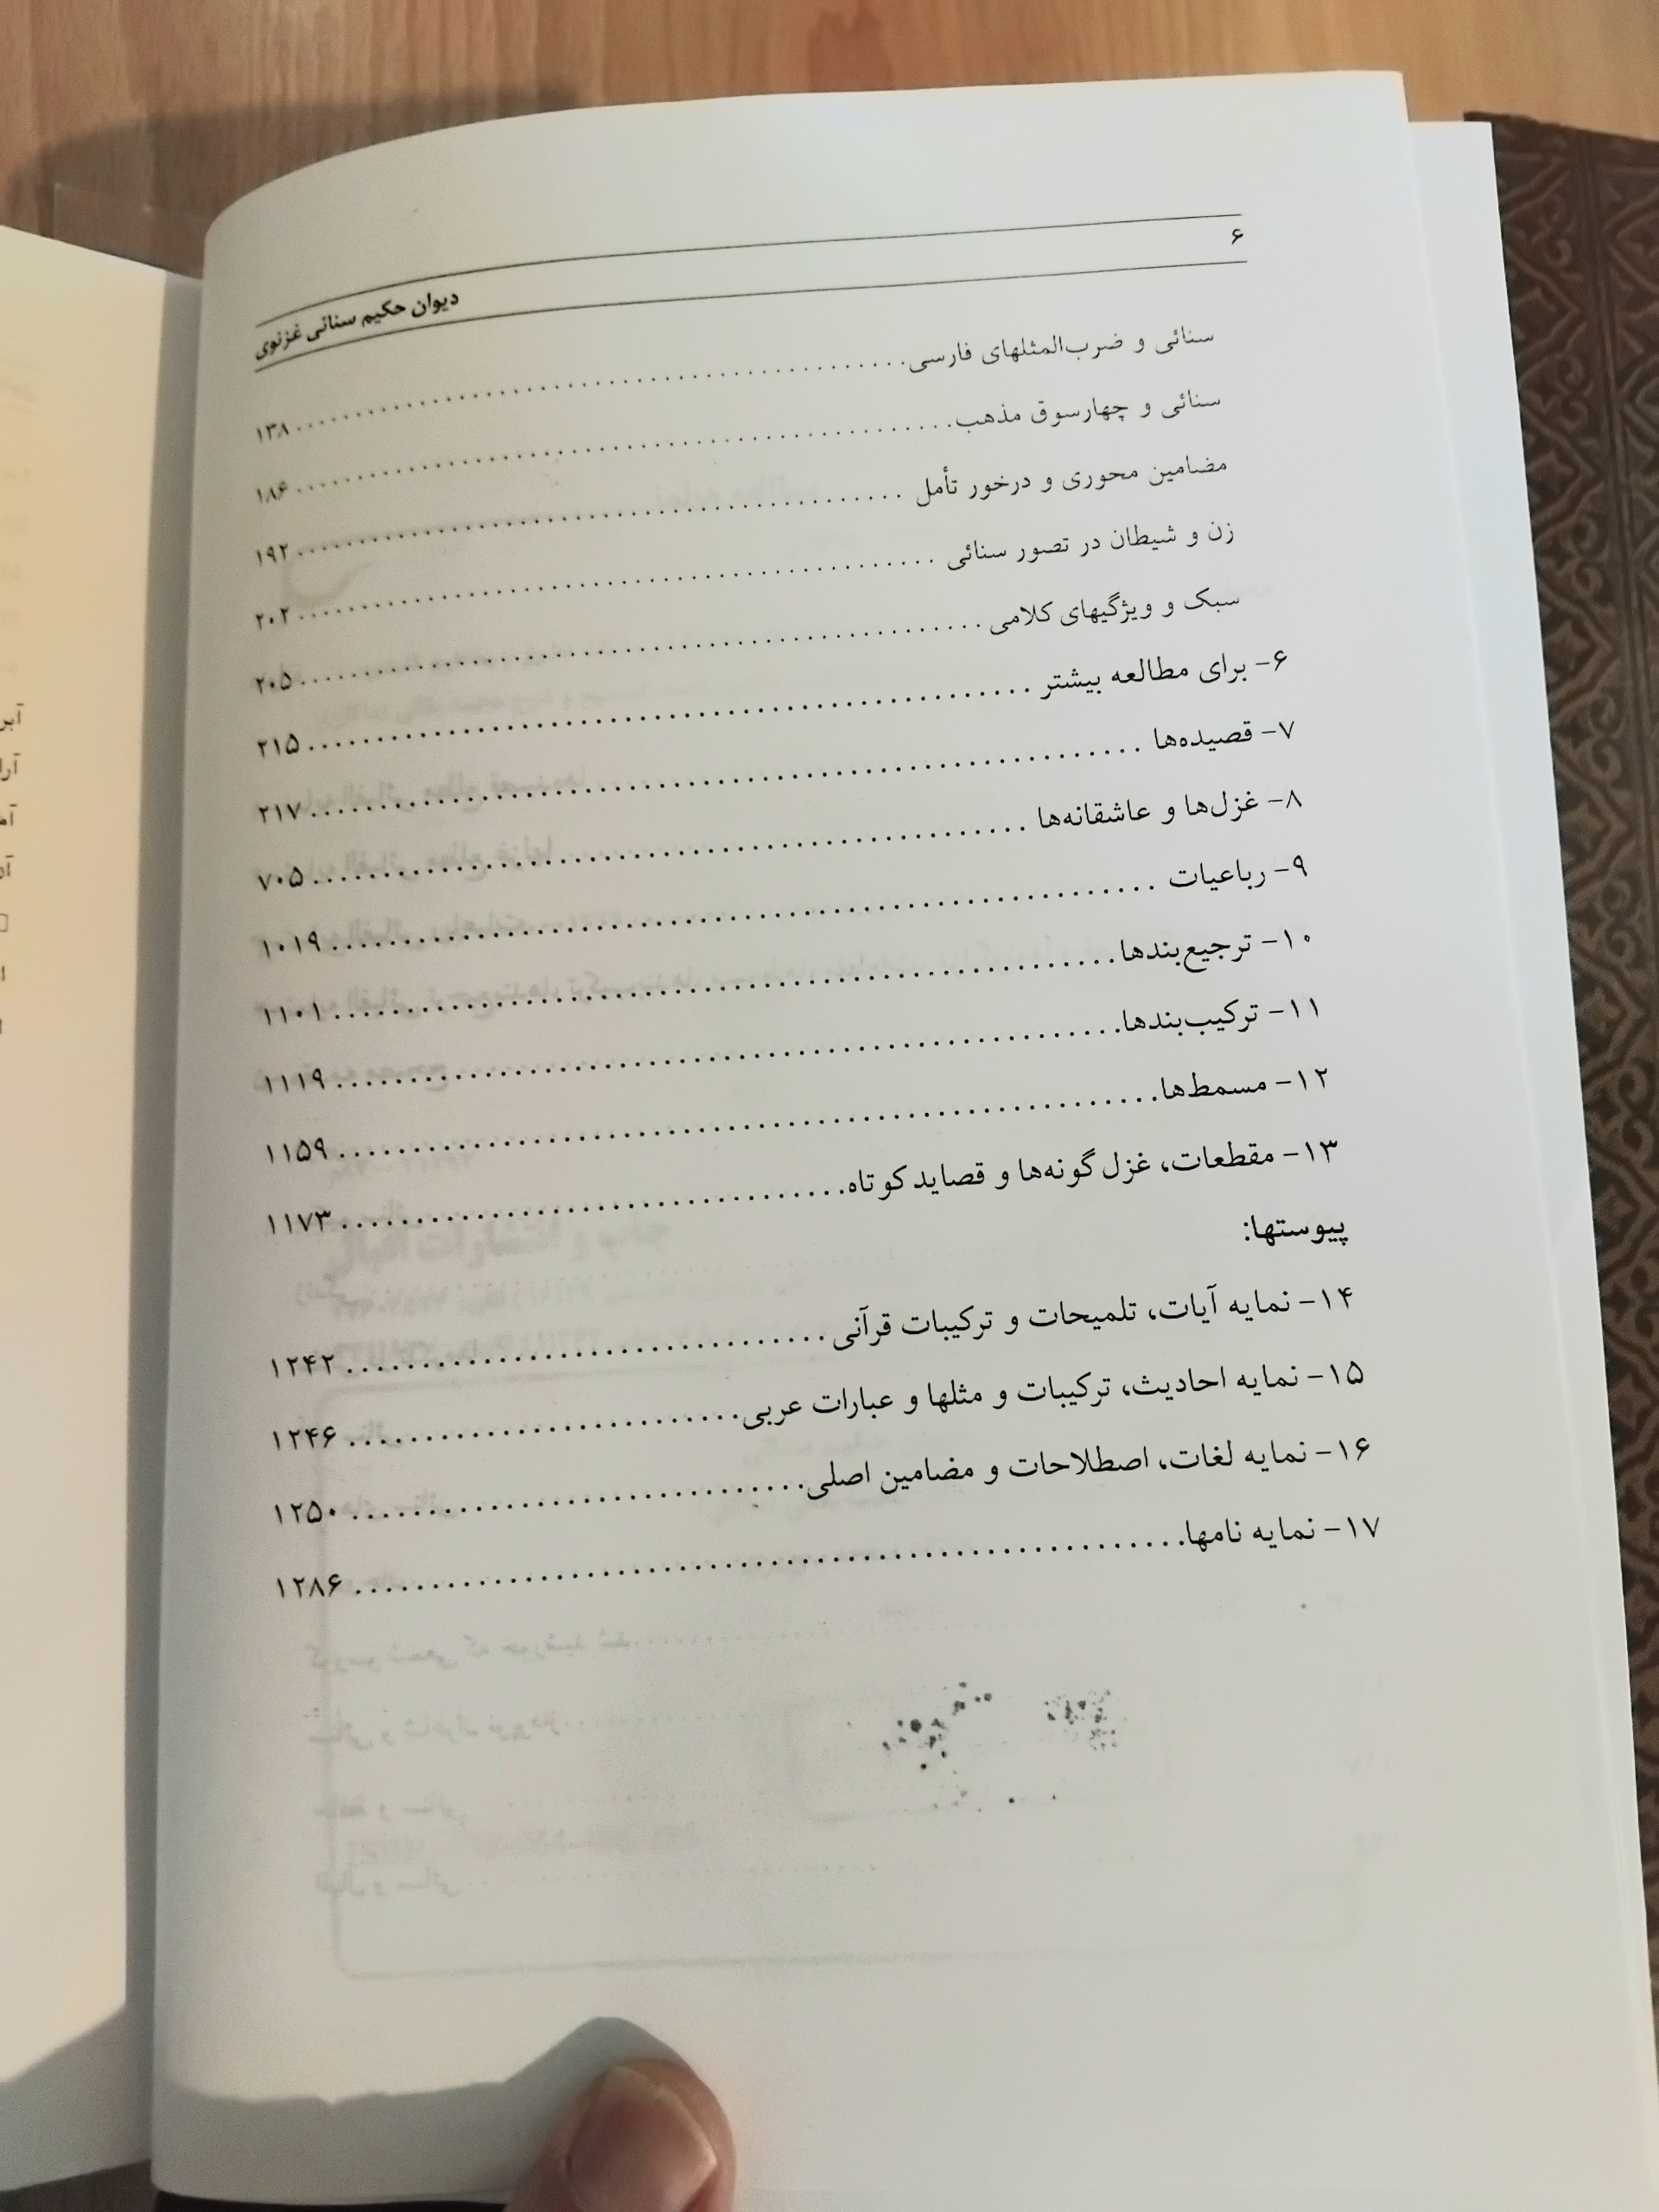 ۶
دیوان حکیم سنائی غزنوی
سنائی و ضرب‌المثلهای فارسی ........ ۱۳۸
سنائی و چهارسوق مذهب ........ ۱۸۶
مضامین محوری و درخور تأمل ........ ۱۹۲
زن و شیطان در تصور سنائی ........ ۲۰۲
سبک و ویژگیهای کلامی ........ ۲۰۵
۶- برای مطالعه بیشتر ........ ۲۱۵
۷- قصیده‌ها ........ ۲۱۷
۸- غزل‌ها و عاشقانه‌ها ........ ۷۰۵
۹- رباعیات ........ ۱۰۱۹
۱۰- ترجیع‌بندها ........ ۱۱۰۱
۱۱- ترکیب‌بندها ........ ۱۱۱۹
۱۲- مسمط‌ها ........ ۱۱۵۹
۱۳- مقطعات، غزل گونه‌ها و قصاید کوتاه ........ ۱۱۷۳
پیوستها:
۱۴- نمایه آیات، تلمیحات و ترکیبات قرآنی ........ ۱۲۴۲
۱۵- نمایه احادیث، ترکیبات و مثلها و عبارات عربی ........ ۱۲۴۶
۱۶- نمایه لغات، اصطلاحات و مضامین اصلی ........ ۱۲۵۰
۱۷- نمایه نامها ........ ۱۲۸۶